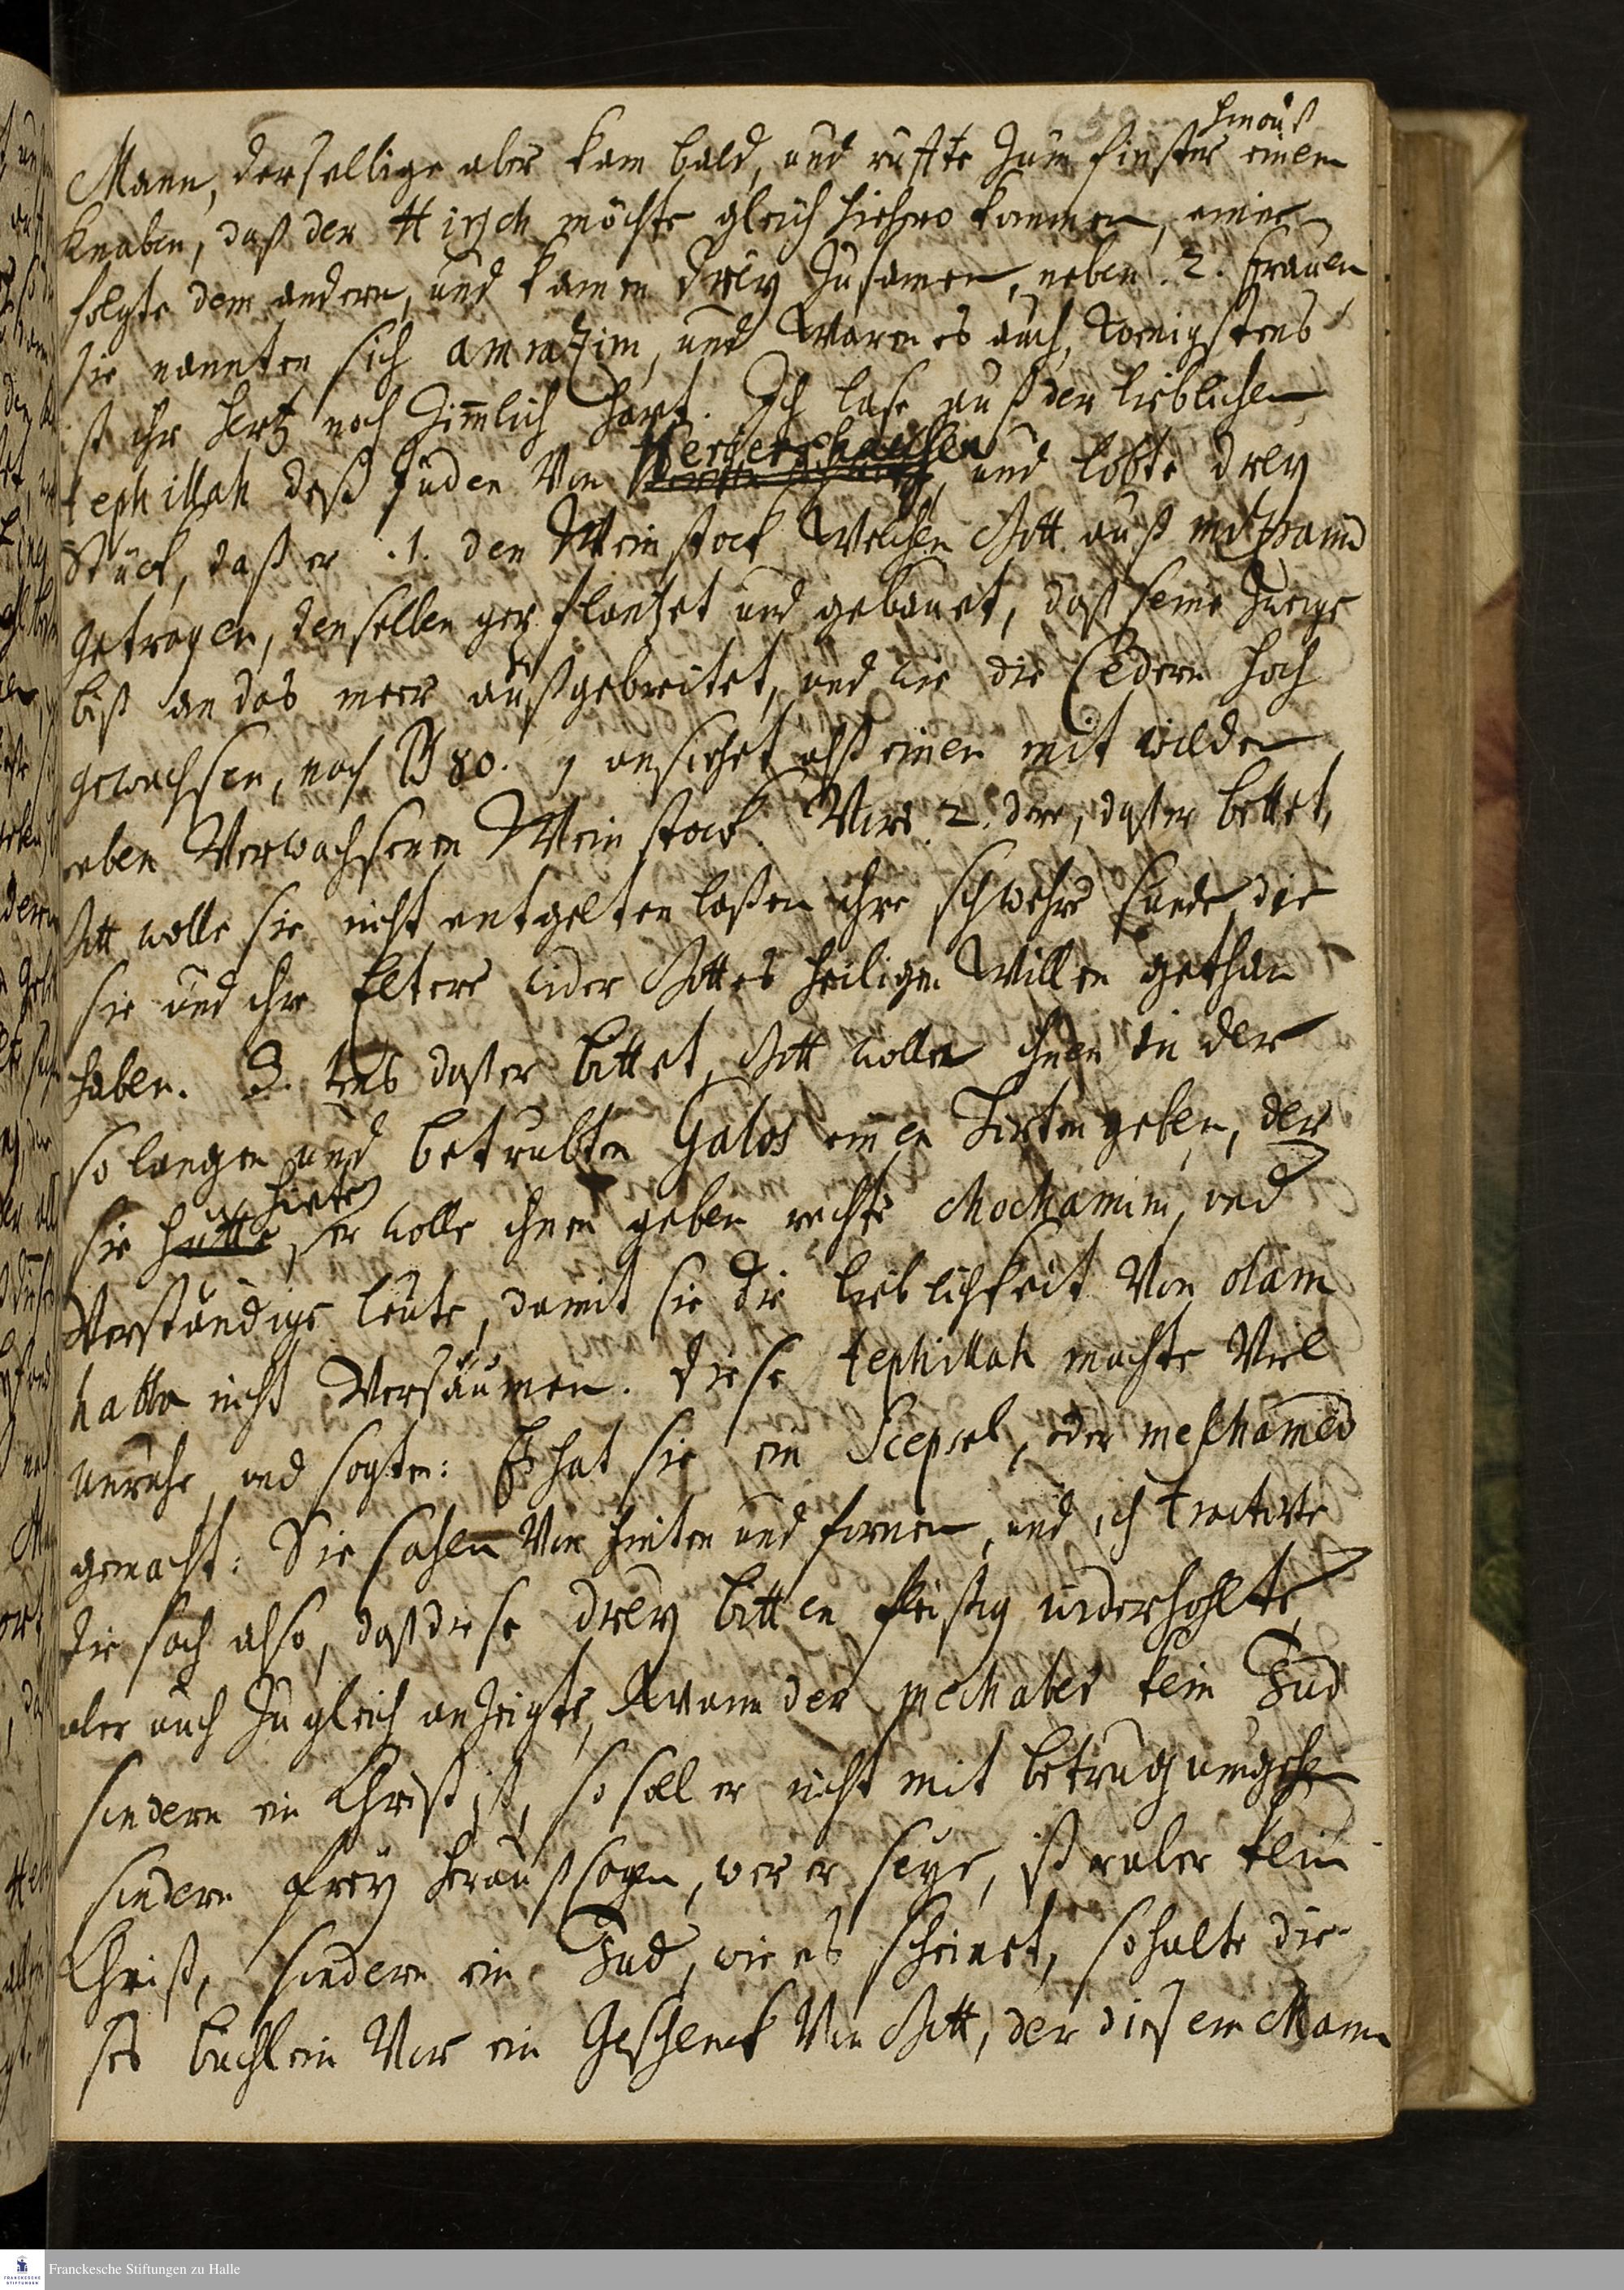 hinauß
Mann, dersellige aber kam bald, und ruffte zum finster einem
Knaben, daß der Hirsch möchte gleich hiehero kommen, einer
folgte dem andern, und kamen drey zusamen, neben 2. Frauen
sie nannten sich amrazim, und waren es auch, wenigstens
ist ihr hertz noch zimlich hart. Ich lase auß der lieblichen
tephillah deß Juden von Hergershausen, und lobte drey
Stück, daß er .1. den Weinstock welchen Gott auß mitzraim
getragen, denselben gepflantzet und gebauet, daß seine Zweige
biß an das meer außgebreitet, und wie die Cedern hoch
gewachsen, nach Ps 80. ansiehet alß einen mit wilden
reben verwachsenen Weinstock. Vors 2. dre, daß er bettet,
Gott wolle sie nicht entgelten laßen ihre schwehre sunde, die
sie und ihre Eltern wider Gottes heiligen Willen gethan
haben. 3. tens daß er bittet, Gott wolle ihnen in der
so langen und betrubten Galos einen Hirten geben, der
hiete
sie hutte, er wolle ihnen geben rechte chochamim, und
verständige leute, damit sie die lieblichkeit von olam
habbo nicht versäumen. Diese tephillah machte viel
unruhe, und sagten: Es hat sie ein Scepsel, oder meschamed
gemacht: Sie sahen von hinten und fornen, und ich tractirte
die sach also, daß diese drey bitten fleisig widerhohlte,
aber auch zugleich anzeigte, wann der mechaber kein Jud
sondern ein Christ ist, so soll er nicht mit betrug umgehen
sondern frey herauß sagen, wer er seye, ist er aber kein
Christ, sondern ein Jud, wie es scheinet, so halte die-
ses buchlein vor ein Geschenck von Gott, der diesem Mann
Franckesche Stiftungen zu Halle